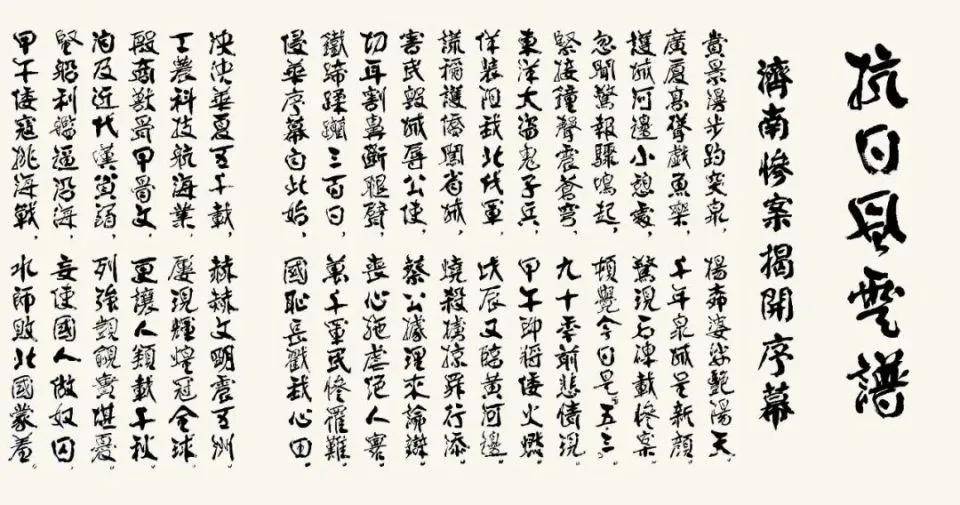 抗日風雲譜
濟南慘案揭開序幕
賞景漫步趵突泉，楊柳婆娑艷陽天。
廣廈高聳戲魚樂，千年泉城呈新顏。
護城河邊小憩處，驚現石碑載慘案。
忽聞警報驟鳴起，頓覺今日是“五三”。
緊接鐘聲震蒼穹，九十年前悲情現。
東洋大盜鬼子兵，甲午即將倭火燃。
佯裝阻我北伐軍，戊辰又臨黃河邊。
謊稱護僑闖省城，燒殺擄掠罪行添。
害民毀城辱公使，蔡公據理來論辯。
切耳割鼻斷腿臂，喪心施虐絕人寰。
鐵蹄蹂躪三百日，萬千軍民慘罹難。
侵華序幕自此始，國恥長戳我心田。
泱泱華夏五千載，赫赫文明震五洲。
工農科技航海業，屢現輝煌冠全球。
殷商獸骨甲骨文，更讓人類載千秋。
洵及近代漢貧弱，列強覬覦實堪憂。
堅船利艦逼沿海，妄使國人做奴囚。
甲午倭寇挑海戰，水師敗北國蒙羞。